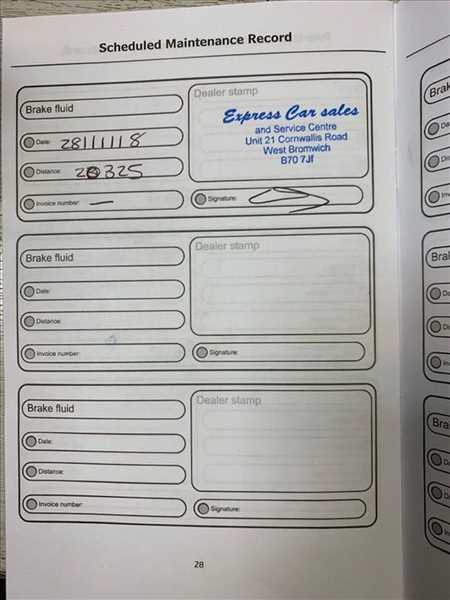 Scheduled Maintenance Record
Brake fluid
Date: 28/11/18
Distance: 28325
Invoice number: —
Dealer stamp
Express Car sales
and Service Centre
Unit 21 Cornwallis Road
West Bromwich
B70 7Jf
Signature:
Brake fluid
Date:
Distance:
Invoice number:
Dealer stamp
Signature:
Brake fluid
Date:
Distance:
Invoice number:
Dealer stamp
Signature:
28